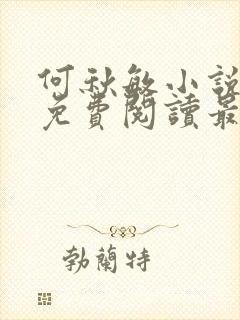 何秋敏小說
免費閱讀最
勃蘭特